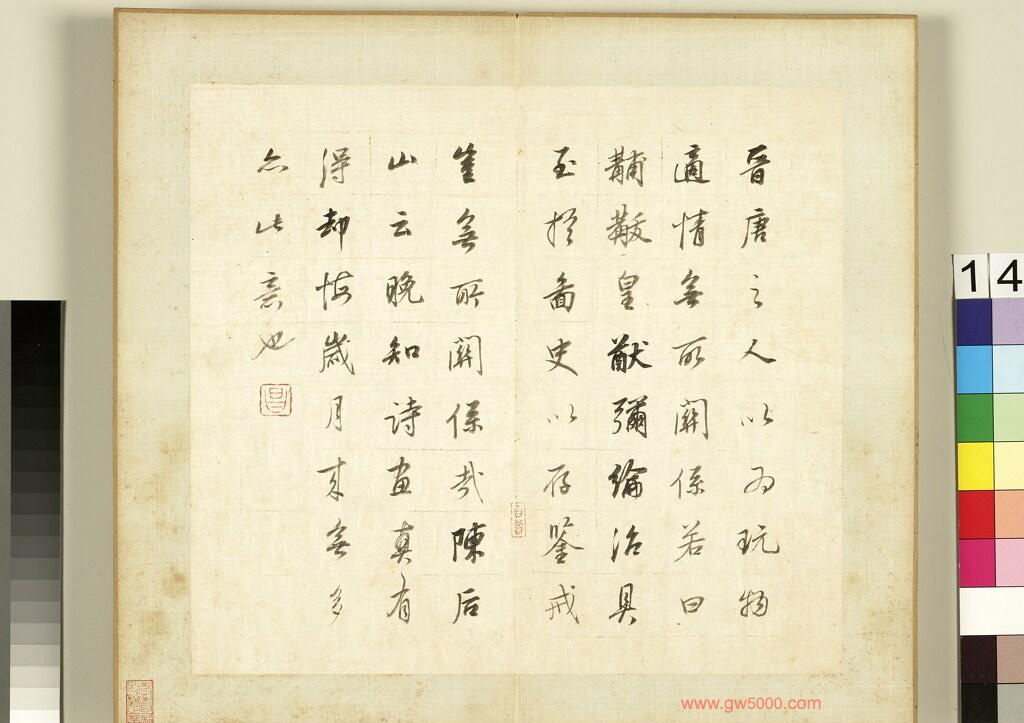 晉唐之人以為玩物
適情無所關係若曰
黼黻皇猷彌綸治具
至於圖史以存鑒戒
豈無所關係哉陳后
山云晚知詩畫真有
得却悔歲月來無多
亦此意也
14
www.gw5000.com